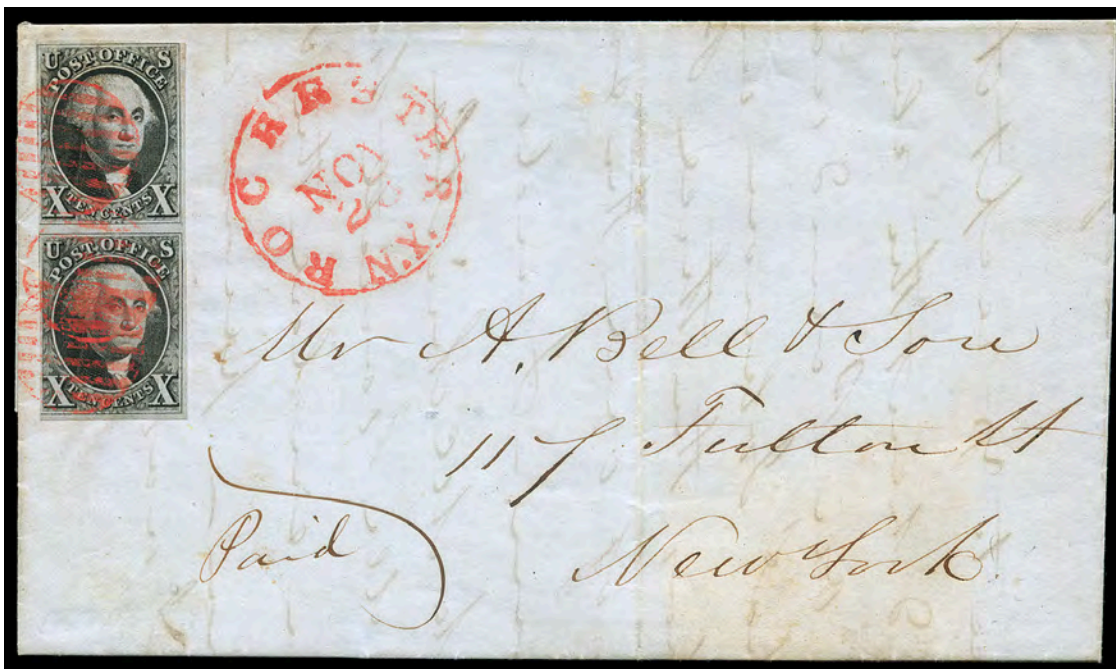 U S
POST OFFICE
X TEN CENTS X
U S
POST OFFICE
X TEN CENTS X
ROCHESTER N.Y.
NOV
Mr A. Bell & Son
117 Fulton St
New York
Paid